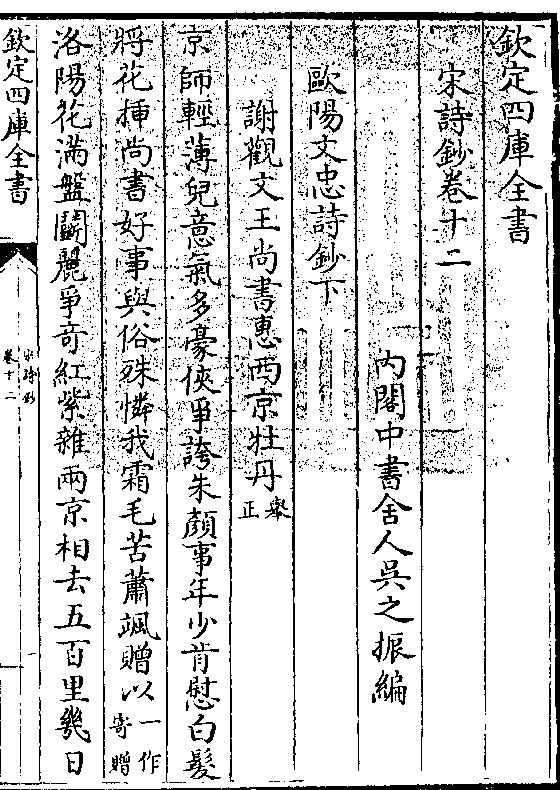 欽定四庫全書
宋詩鈔卷十二
内閣中書舍人吳之振編
歐陽文忠詩鈔下
謝觀文王尚書惠西京牡丹舉正
京師輕薄兒意氣多豪俠爭誇朱顔事年少肯慰白髮
將花揷尚書好事與俗殊憐我霜毛苦蕭颯贈以一作寄贈
洛陽花滿盤鬬麗爭奇紅紫雜兩京相去五百里幾日
欽定四庫全書
宋詩鈔
卷十二